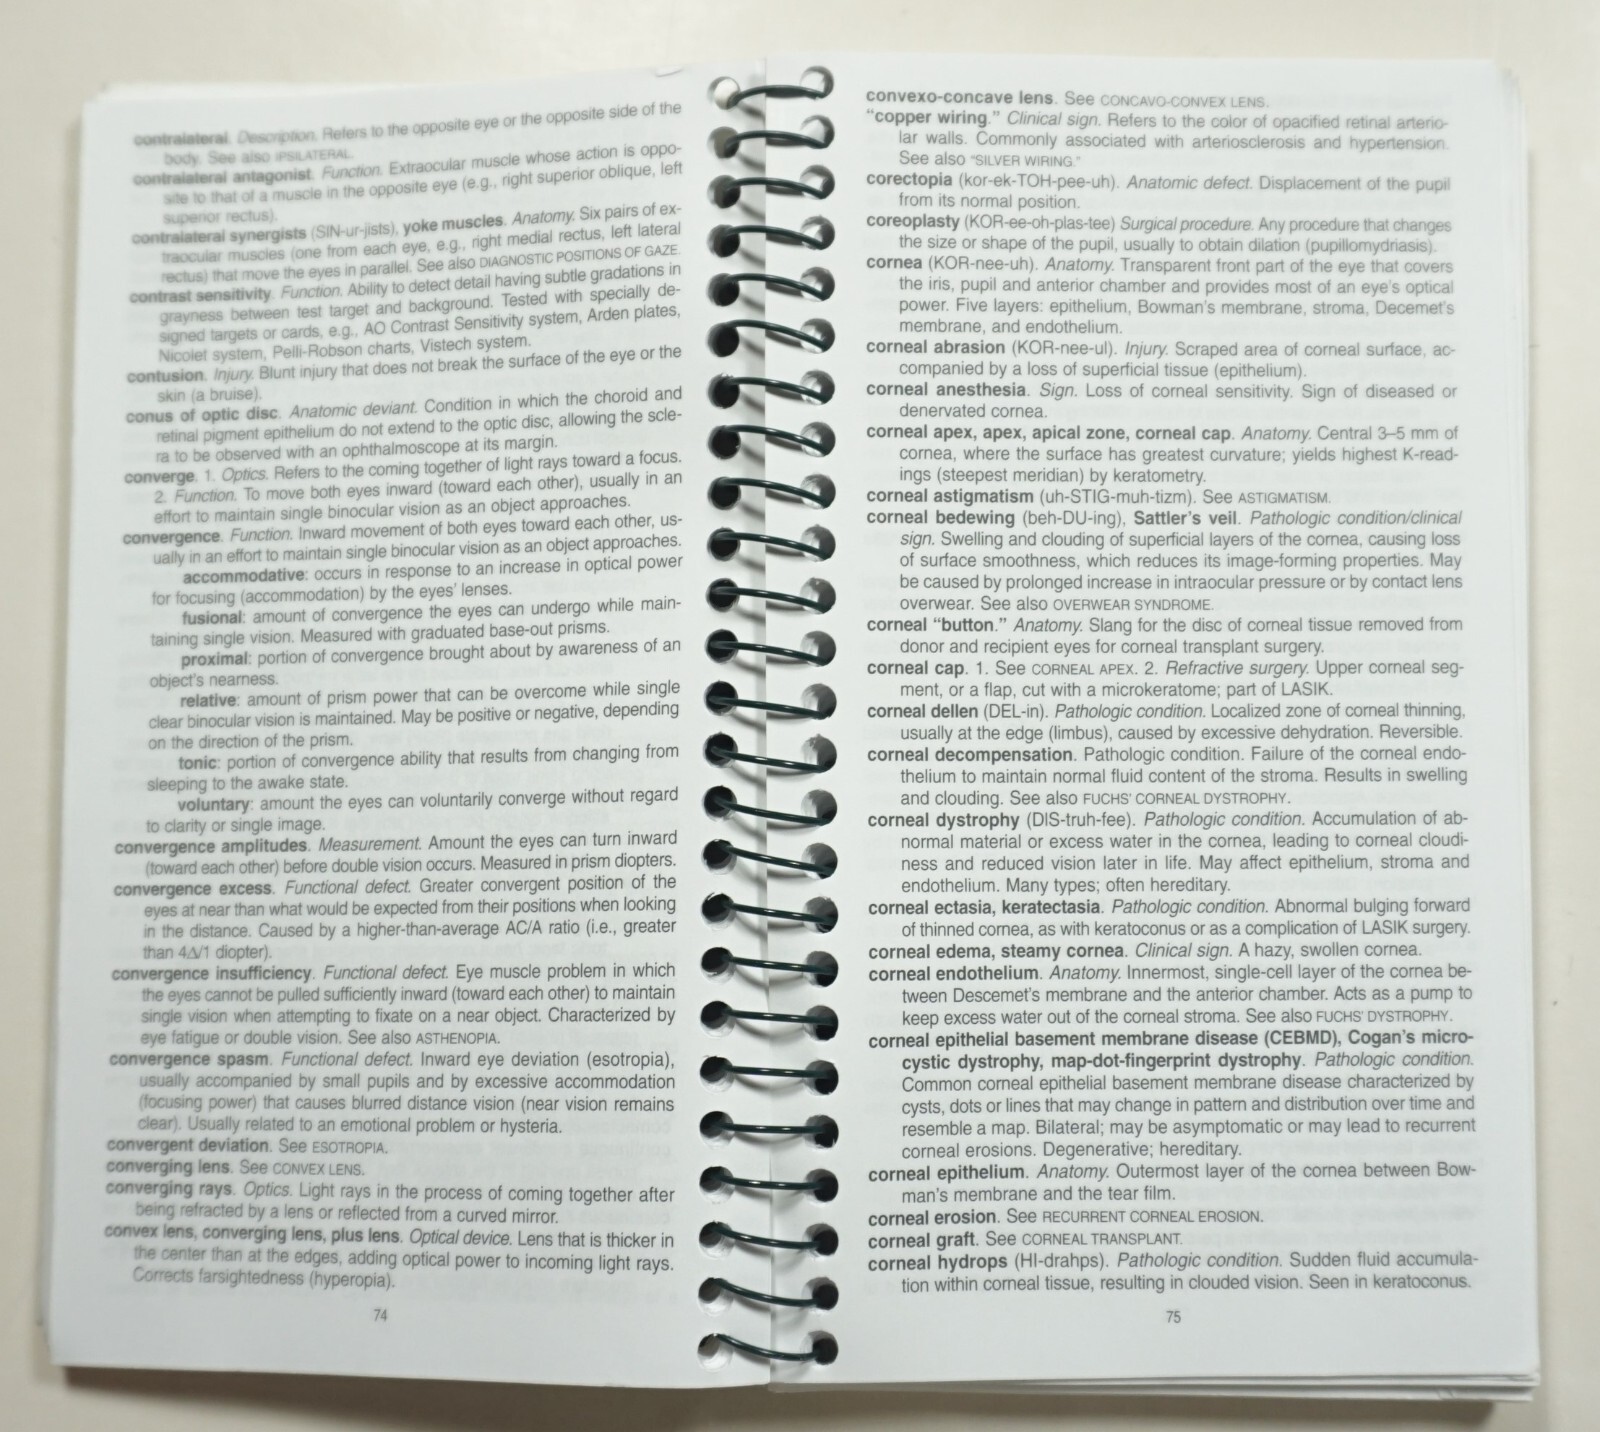 contralateral. Description. Refers to the opposite eye or the opposite side of the
body. See also IPSILATERAL.
contralateral antagonist. Function. Extraocular muscle whose action is oppo-
site to that of a muscle in the opposite eye (e.g., right superior oblique, left
superior rectus).
contralateral synergists (SIN-ur-jists), yoke muscles. Anatomy. Six pairs of ex-
traocular muscles (one from each eye, e.g., right medial rectus, left lateral
rectus) that move the eyes in parallel. See also DIAGNOSTIC POSITIONS OF GAZE.
contrast sensitivity. Function. Ability to detect detail having subtle gradations in
grayness between test target and background. Tested with specially de-
signed targets or cards, e.g., AO Contrast Sensitivity system, Arden plates,
Nicolet system, Pelli-Robson charts, Vistech system.
contusion. Injury. Blunt injury that does not break the surface of the eye or the
skin (a bruise).
conus of optic disc. Anatomic deviant. Condition in which the choroid and
retinal pigment epithelium do not extend to the optic disc, allowing the scle-
ra to be observed with an ophthalmoscope at its margin.
converge. 1. Optics. Refers to the coming together of light rays toward a focus.
2. Function. To move both eyes inward (toward each other), usually in an
effort to maintain single binocular vision as an object approaches.
convergence. Function. Inward movement of both eyes toward each other, us-
ually in an effort to maintain single binocular vision as an object approaches.
accommodative: occurs in response to an increase in optical power
for focusing (accommodation) by the eyes' lenses.
fusional: amount of convergence the eyes can undergo while main-
taining single vision. Measured with graduated base-out prisms.
proximal: portion of convergence brought about by awareness of an
object's nearness.
relative: amount of prism power that can be overcome while single
clear binocular vision is maintained. May be positive or negative, depending
on the direction of the prism.
tonic: portion of convergence ability that results from changing from
sleeping to the awake state.
voluntary: amount the eyes can voluntarily converge without regard
to clarity or single image.
convergence amplitudes. Measurement. Amount the eyes can turn inward
(toward each other) before double vision occurs. Measured in prism diopters.
convergence excess. Functional defect. Greater convergent position of the
eyes at near than what would be expected from their positions when looking
in the distance. Caused by a higher-than-average AC/A ratio (i.e., greater
than 4Δ/1 diopter).
convergence insufficiency. Functional defect. Eye muscle problem in which
the eyes cannot be pulled sufficiently inward (toward each other) to maintain
single vision when attempting to fixate on a near object. Characterized by
eye fatigue or double vision. See also ASTHENOPIA.
convergence spasm. Functional defect. Inward eye deviation (esotropia),
usually accompanied by small pupils and by excessive accommodation
(focusing power) that causes blurred distance vision (near vision remains
clear). Usually related to an emotional problem or hysteria.
convergent deviation. See ESOTROPIA.
converging lens. See CONVEX LENS.
converging rays. Optics. Light rays in the process of coming together after
being refracted by a lens or reflected from a curved mirror.
convex lens, converging lens, plus lens. Optical device. Lens that is thicker in
the center than at the edges, adding optical power to incoming light rays.
Corrects farsightedness (hyperopia).
74
convexo-concave lens. See CONCAVO-CONVEX LENS.
"copper wiring." Clinical sign. Refers to the color of opacified retinal arterio-
lar walls. Commonly associated with arteriosclerosis and hypertension.
See also "SILVER WIRING."
corectopia (kor-ek-TOH-pee-uh). Anatomic defect. Displacement of the pupil
from its normal position.
coreoplasty (KOR-ee-oh-plas-tee) Surgical procedure. Any procedure that changes
the size or shape of the pupil, usually to obtain dilation (pupillomydriasis).
cornea (KOR-nee-uh). Anatomy. Transparent front part of the eye that covers
the iris, pupil and anterior chamber and provides most of an eye's optical
power. Five layers: epithelium, Bowman's membrane, stroma, Decemet's
membrane, and endothelium.
corneal abrasion (KOR-nee-ul). Injury. Scraped area of corneal surface, ac-
companied by a loss of superficial tissue (epithelium).
corneal anesthesia. Sign. Loss of corneal sensitivity. Sign of diseased or
denervated cornea.
corneal apex, apex, apical zone, corneal cap. Anatomy. Central 3–5 mm of
cornea, where the surface has greatest curvature; yields highest K-read-
ings (steepest meridian) by keratometry.
corneal astigmatism (uh-STIG-muh-tizm). See ASTIGMATISM.
corneal bedewing (beh-DU-ing), Sattler's veil. Pathologic condition/clinical
sign. Swelling and clouding of superficial layers of the cornea, causing loss
of surface smoothness, which reduces its image-forming properties. May
be caused by prolonged increase in intraocular pressure or by contact lens
overwear. See also OVERWEAR SYNDROME.
corneal "button." Anatomy. Slang for the disc of corneal tissue removed from
donor and recipient eyes for corneal transplant surgery.
corneal cap. 1. See CORNEAL APEX. 2. Refractive surgery. Upper corneal seg-
ment, or a flap, cut with a microkeratome; part of LASIK.
corneal dellen (DEL-in). Pathologic condition. Localized zone of corneal thinning,
usually at the edge (limbus), caused by excessive dehydration. Reversible.
corneal decompensation. Pathologic condition. Failure of the corneal endo-
thelium to maintain normal fluid content of the stroma. Results in swelling
and clouding. See also FUCHS' CORNEAL DYSTROPHY.
corneal dystrophy (DIS-truh-fee). Pathologic condition. Accumulation of ab-
normal material or excess water in the cornea, leading to corneal cloudi-
ness and reduced vision later in life. May affect epithelium, stroma and
endothelium. Many types; often hereditary.
corneal ectasia, keratectasia. Pathologic condition. Abnormal bulging forward
of thinned cornea, as with keratoconus or as a complication of LASIK surgery.
corneal edema, steamy cornea. Clinical sign. A hazy, swollen cornea.
corneal endothelium. Anatomy. Innermost, single-cell layer of the cornea be-
tween Descemet's membrane and the anterior chamber. Acts as a pump to
keep excess water out of the corneal stroma. See also FUCHS' DYSTROPHY.
corneal epithelial basement membrane disease (CEBMD), Cogan's micro-
cystic dystrophy, map-dot-fingerprint dystrophy. Pathologic condition.
Common corneal epithelial basement membrane disease characterized by
cysts, dots or lines that may change in pattern and distribution over time and
resemble a map. Bilateral; may be asymptomatic or may lead to recurrent
corneal erosions. Degenerative; hereditary.
corneal epithelium. Anatomy. Outermost layer of the cornea between Bow-
man's membrane and the tear film.
corneal erosion. See RECURRENT CORNEAL EROSION.
corneal graft. See CORNEAL TRANSPLANT.
corneal hydrops (HI-drahps). Pathologic condition. Sudden fluid accumula-
tion within corneal tissue, resulting in clouded vision. Seen in keratoconus.
75